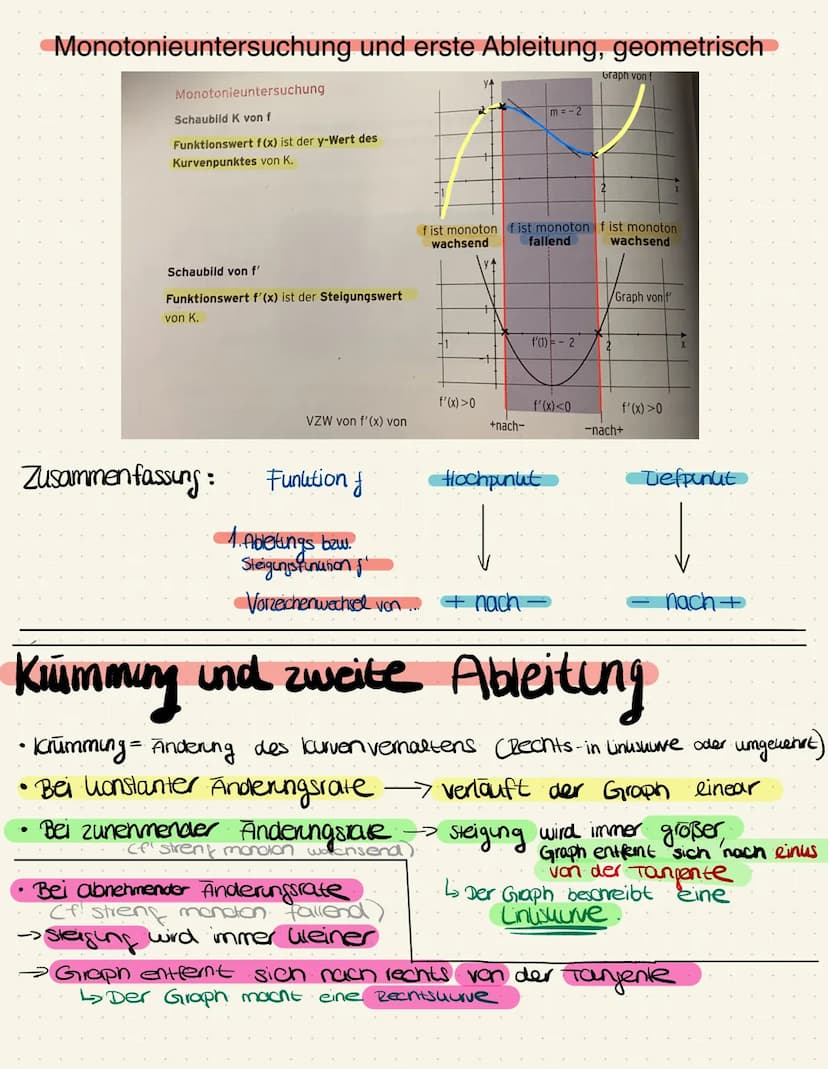 Monotonieuntersuchung und erste Ableitung, geometrisch
Monotonieuntersuchung
Schaubild K von f
Funktionswert f(x) ist der y-Wert des
Kurvenpunktes von K.
y
Graph von f
m = -2
1
-1
2
x
f ist monoton wachsend
f ist monoton fallend
f ist monoton wachsend
Schaubild von f'
Funktionswert f'(x) ist der Steigungswert
von K.
y
Graph von f'
1
-1
-1
f'(1) = - 2
2
x
f'(x) >0
f'(x)<0
f'(x) >0
VZW von f'(x) von
+nach-
-nach+
Zusammenfassung: Funktion f Hochpunkt Tiefpunkt
1. Ableitungs bzw.
Steigungsfunktion f'
Vorzeichenwechsel von ... + nach - - nach +
Krümmung und zweite Ableitung
• Krümmung = Änderung des Kurvenverhaltens (Rechts- in Linkskurve oder umgekehrt)
• Bei konstanter Änderungsrate → verläuft der Graph linear
• Bei zunehmender Änderungsrate → Steigung wird immer größer,
(f' streng monoton wachsend)
Graph entfernt sich nach links
von der Tangente
↳ Der Graph beschreibt eine
Linkskurve.
• Bei abnehmender Änderungsrate
(f' streng monoton fallend)
→ Steigung wird immer kleiner
→ Graph entfernt sich nach rechts von der Tangente
↳ Der Graph macht eine Rechtskurve